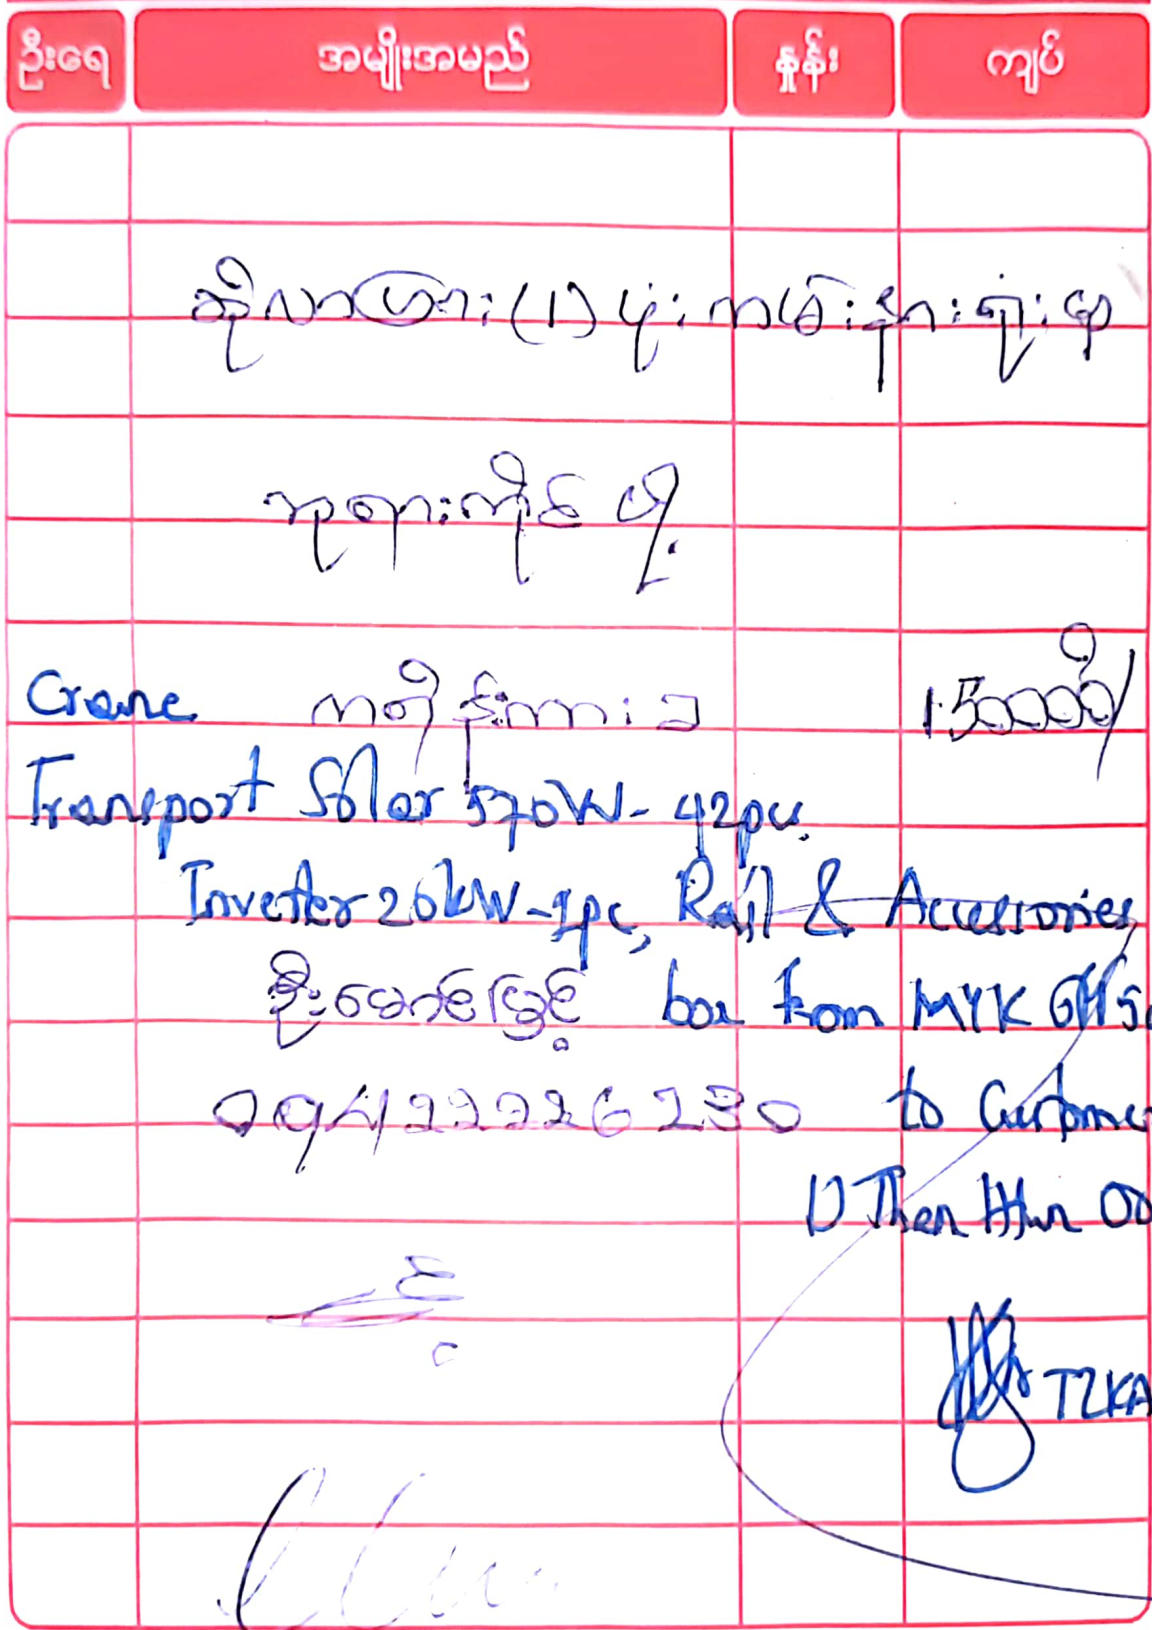 ဦးရေ အမျိုးအမည် နှုန်း ကျပ်
ဆိုလာပြား (၁) ပုံး ကမ်းနားရုံးမှ
ဘုရားကိုင် ပို့
Crane ကရိန်းကား ခ 150000/
Transport Solar 570W- 42pcs.
Inverter 20kW-1pc, Rail & Accessories
ဦးမောင်မြင့် box from MYK
09422226230 to Customer
U Then Htun OO
TZKA